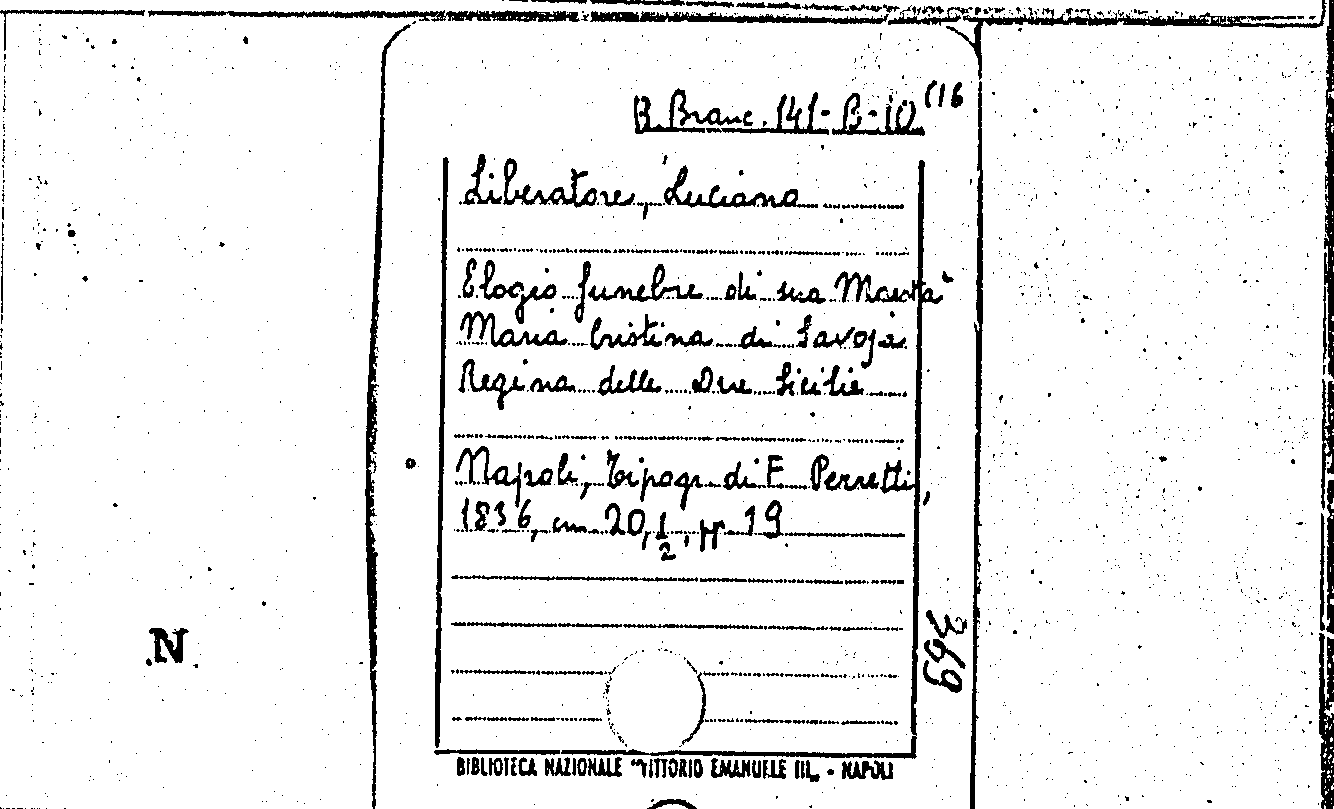 B. Branc. 141-B-10 (16
Liberatore, Luciano
Elogio funebre di sua Maestà
Maria Cristina di Savoja
Regina delle Due Sicilie
Napoli, Tipogr. di F. Perretti,
1836, cm 20,1/2, pp 19
369
N
BIBLIOTECA NAZIONALE "VITTORIO EMANUELE III„ - NAPOLI